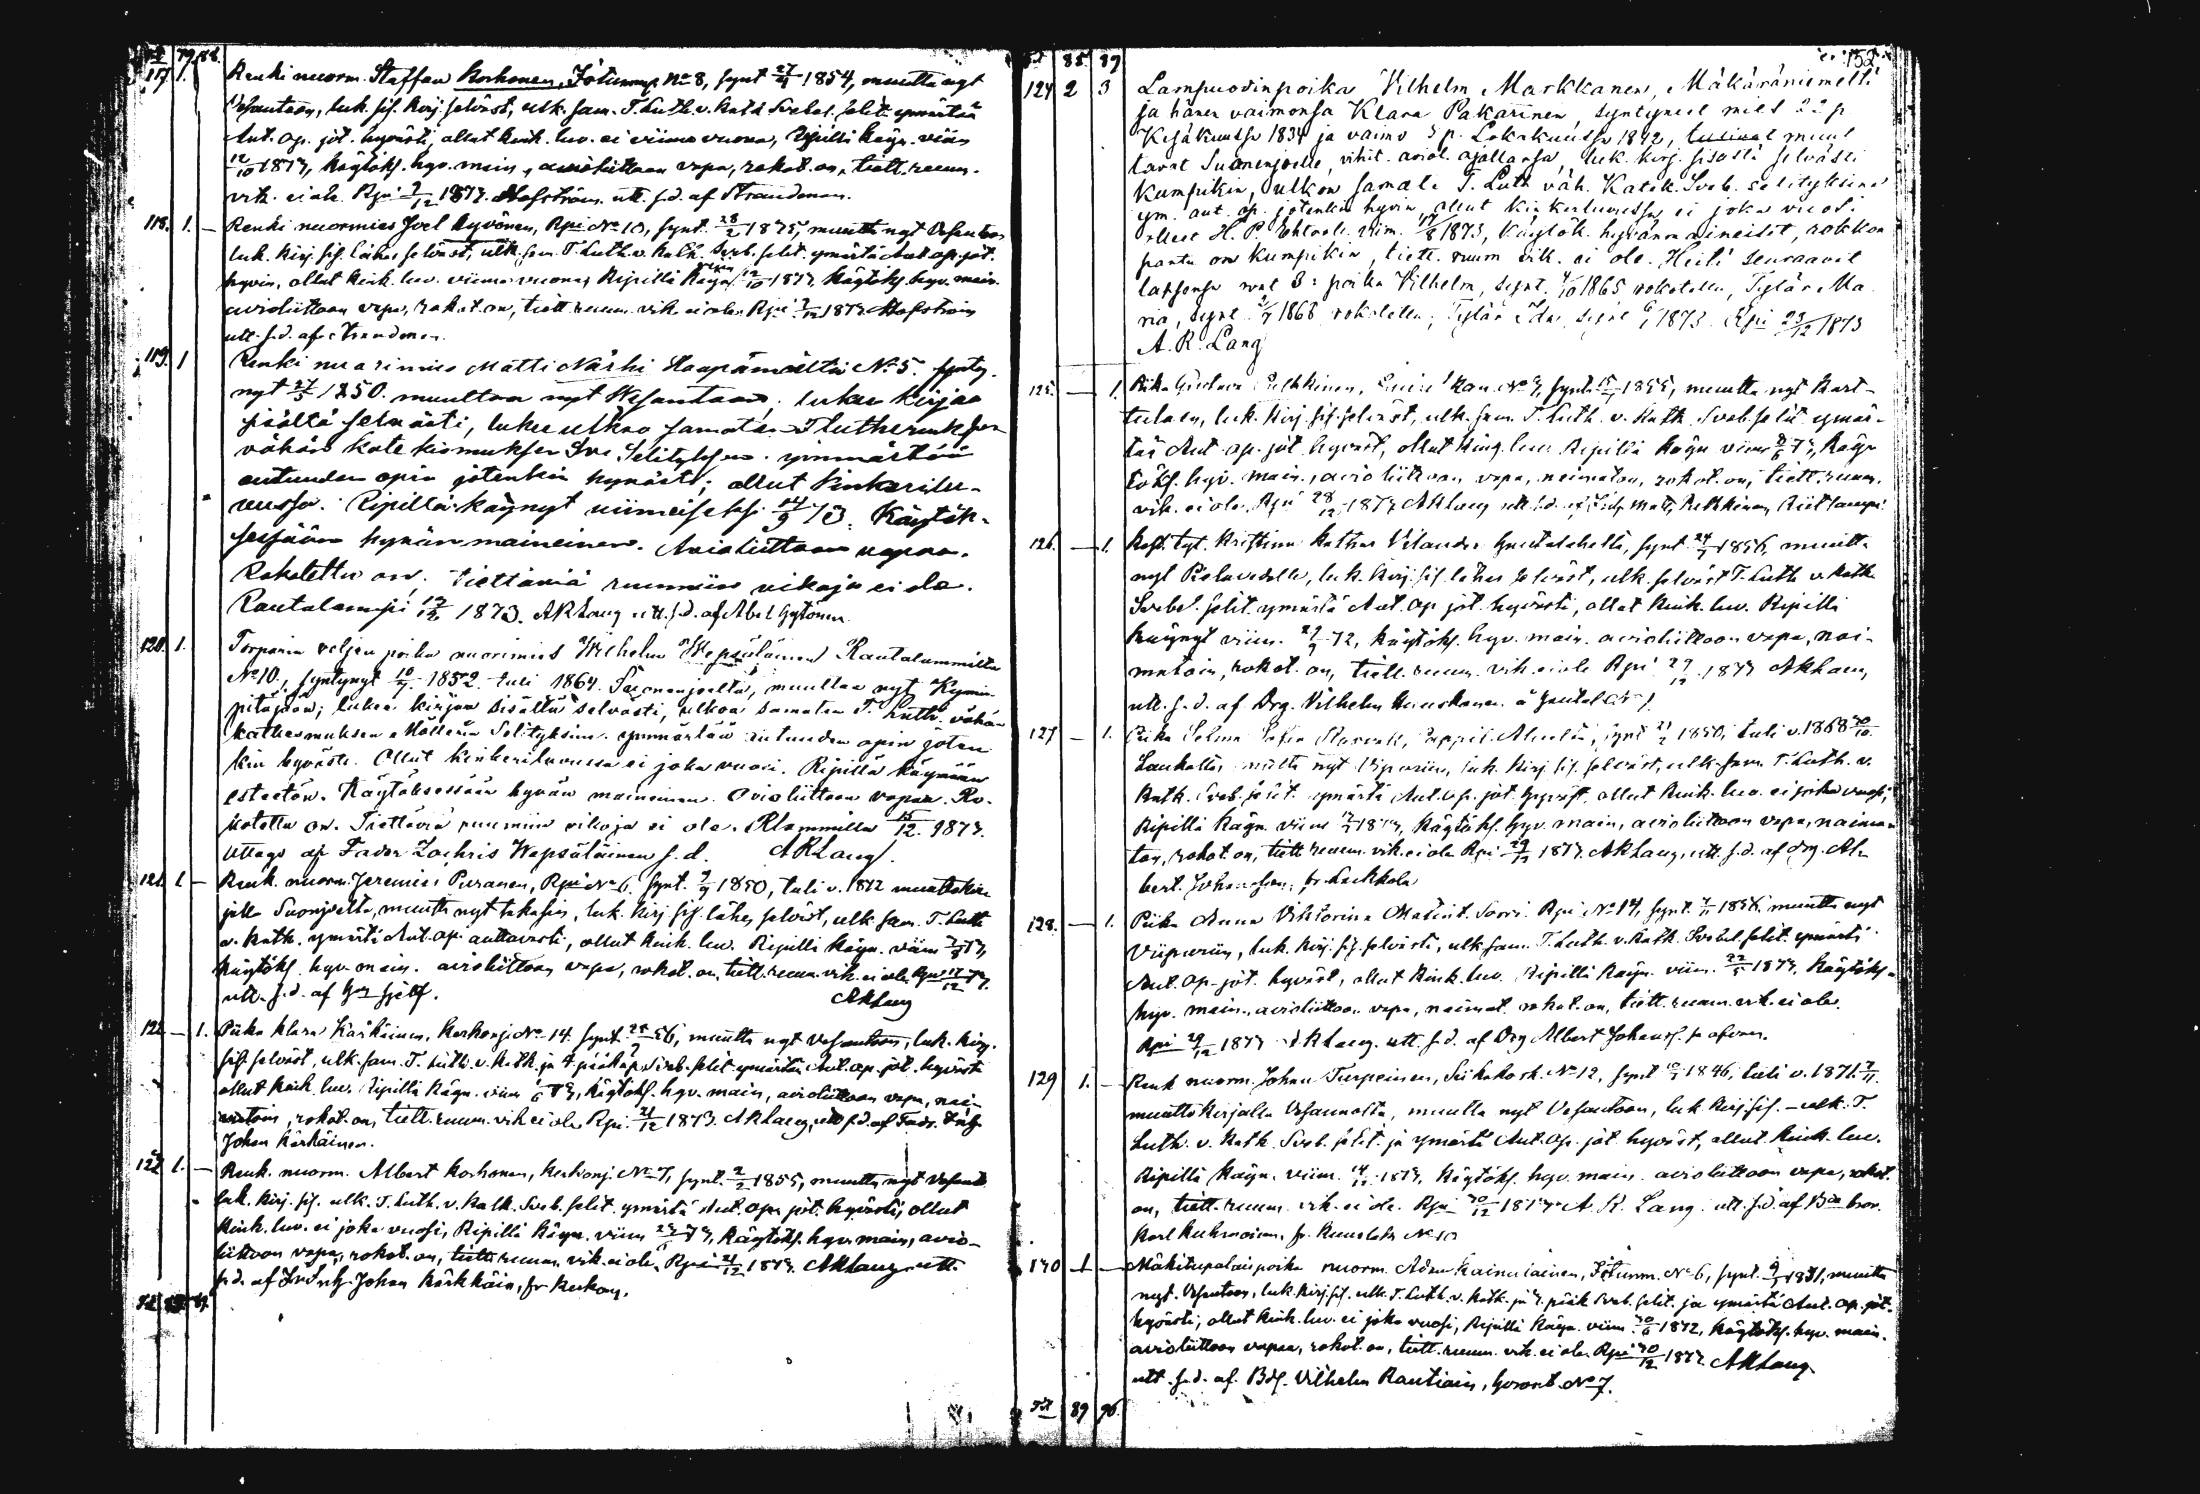 79 88.
117. 1. Renki nuorm. Staffan Korhonen, No 8, synt 27/4 1854, muutta nyt
Vesantoon, luk. sis. kirj. selväst, ulk. sam. T. Luth. v. Kath Svebel. selit. ymärtää
Aut. op. jot. hyvästi, ollut kink. luv. ei viime vuonna, Ripillä käyn. viim
12/10 1873, käytöks. hyv. main, avioliittoon vapa, rokot. on, tiett. ruum.
vik. ei ole. Rpi 9/12 1873. Hofström. utt. s.d. af Strandman.
118. 1. — Renki nuormies Joel Hyvönen, Rpi No 10, synt. 28/2 1875, muutta nyt Vesantoon
luk. kirj. sis. lähes selväst, ulk. sam. T. Luth. v. Kath. Sveb. selit. ymärtä Aut. op. jot.
hyvin, ollut kink. luv. viime vuonna, Ripillä käyn 12/10 1873, käytöks. hyv. main.
avioliittoon vapa, rokot. on, tiett. ruum. vik. ei ole. Rpi 9/12 1873 Hofström
utt. s.d. af Strandman.
119. 1 Renki nuorimies Matti Närhi Haapamäeltä No 5. synty-
nyt 27/5 1850. muuttaa nyt Wesantoon; lukee kirjaa
sisältä selvästi, lukee ulkoa samaten T Lutheruksen
vähän katekismuksen Sve Selityksen. ymmärtää
autuuden opin jotenkin hyvästi; ollut kinkerilu-
vussa. Ripillä käynyt viimeiseksi 14/9 73. Käytök-
sessään hyvän maineinen. Avioliittoon vapaa.
Rokotettu on. Tiettäviä ruumiin vikoja ei ole.
Rautalampi 17/12 1873. AKLang utt. s.d. af Abel Hytönen
120. 1. Torparin veljen poika nuorimies Wilhelm Wepsäläinen Rautalammilta
No 10., syntynyt 10/7 1852. tuli 1864. Suonenjoelta, muuttaa nyt Kymin
pitäjään; lukee kirjan sisältä selvästi, ulkoa samaten T. Luth. vähän
katkesmuksen Möllerin Selityksine. ymmärtää autuuden opin joten
kin hyvästi. Ollut kinkeriluvussa ei joka vuosi. Ripillä käymään
esteetön. Käytöksessään hyvän maineinen. Avioliittoon vapaa. Ro-
kotettu on. Tiettäviä ruumiin vikoja ei ole. Rlammilla 15/12. 1873.
Uttags af Fader Zachris Wepsäläinen s.d. AKLang.
121. 1. — Renk. nuorm. Jeremias Puranen, Rpi No 6. synt. 9/9 1850, tuli v. 1872 muuttokir
jalla Suonjoelta, muutta nyt takasin, luk. kirj. sis. lähes selväst, ulk. sam. T. Luth
v. Kath. ymärtä Aut. op. auttavasti, ollut kink. luv. Ripillä käyn. viim 73,
käytöks. hyv. main. avioliittoon vapa, rokot. on, tiett. ruum. vik. ei ole. Rpi 17/12 73.
utt. s.d. af
AKLang
122 — 1. Piika Klara Kärkäinen, Kerkonj. No 14. synt 56, muutta nyt Vesantoon, luk. kirj.
sis. selväst, ulk. sam. T. Luth. v. Kath. ja Sveb. selit ymärtää Aut. op. jot. hyvästi
ollut kink. luv. Ripillä käyn. viim 73, käytöks. hyv. main, avioliittoon vapa, nai-
matoin, rokot. on, tiett. ruum. vik. ei ole. Rpi. 21/12 1873. AKLang, utt s.d. af Fadr.
Johan Kärkäinen.
123 1. — Renk. nuorm. Albert Korhonen, Kerkonj. No 7, synt. 2/2 1855, muutta nyt Vesant
luk. kirj. sis. ulk. T. Luth. v. Kath. Sveb. selit. ymärtä Aut. op. jot. hyvästi, ollut
kink. luv. ei joka vuosi, Ripillä käyn. viim 73, käytöks. hyv. main, avio-
liittoon vapa, rokot. on, tiett. ruum. vik. ei ole. Rpi 21/12 1873. AKLang utt.
s.d. af Johan Kärkkäin, fr Kerkonj.
85. 87
152
124 2 3 Lampuodinpoika Vilhelm Markkanen, Mäkäräniemeltä
ja hänen vaimonsa Klara Pakarinen, syntyneet mies 22 p
Kesäkuussa 1834 ja vaimo 5 p. Lokakuussa 1842, muut
tavat Suonenjoelle, vihit. aviol. ajallansa, luk. kirj. sisästä selvästi
kumpikin, ulkon samate T. Luth väh. Katek. Sveb. selityksine
ym. aut. op. jotenkin hyvin, ollut kinkeriluvussa ei joka vuosi
olleet H. P. Ehtool. viim. 1873, käytök. hyvänmaineiset, rokkon
pantu on kumpikin, tiett. ruum vik. ei ole. Heitä seuraavat
lapsensa ovat 3: poika Vilhelm, synt. 1865 rokotettu, Tytär Ma-
ria, synt. 1868 rokotettu, Tytär Ida synt 1873. Rpi 23/12 1873
A. K. Lang
125. — 1. Piika Gustava Puthkinen, No 7, synt. 1855, muutta nyt Kart-
tulaan, luk. kirj. sis. selväst, ulk. sam. T. Luth. v. Kath. Sveb. selit ymär-
tää Aut. op. jot. hyväst, ollut kink. luv. Ripillä käyn viim 73, käy-
töks. hyv. main., avioliittoon vapa, naimaton, rokot. on, tiett. ruum.
vik. ei ole. Rpi 28/12 1873 AKLang utt s.d. af
126. — 1. Kristina Kathar Vilander synt 24/7 1856, muutta
nyt Pielavedelle, luk. kirj. sis. lähes selväst, ulk. selväst T. Luth v. Kath
Svebel. selit. ymärtä Aut. op jot. hyvästi, ollut kink. luv. Ripillä
käynyt viim. 29/9 72, käytöks. hyv. main. avioliittoon vapa, nai-
matoin, rokot. on, tiett. ruum. vik. ei ole Rpi 29/12 1873 AKLang,
utt. s.d. af Drg. Vilhelm
127 — 1. Piika Selma Sofia synt 21/2 1850, tuli v. 1868 30/10
muutta nyt Viipuriin, luk. kirj. sis. selväst, ulk. sam. T. Luth. v.
Kath. Sveb. selit. ymärtä Aut. op. jot. hyväst, ollut kink. luv. ei joka vuosi,
Ripillä käyn. viim 1873, käytöks. hyv. main, avioliittoon vapa, naima-
ton, rokot. on, tiett ruum. vik. ei ole Rpi 29/12 1873. AKLang, utt. s.d. af drg. Al-
bert. Johansson, fr.
128. — 1. Piika Anna Viktorina Rpi No 14, synt. 1856. muutta nyt
Viipuriin, luk. kirj. sis. selvästi, ulk. sam. T. Luth. v. Kath. Svebel. selit. ymärtä
Aut. op. jot. hyväst, ollut kink. luv. Ripillä käyn. viim. 22/5 1873. käytöks.
hyv. main., avioliittoon vapa, naimat. rokot. on, tiett. ruum. vik. ei ole.
Rpi 29/12 1873 AKLang. utt. s.d. af Drg Albert Johanss.
129 1. — Renk nuorm. Johan Turpeinen, No 12, synt 1846, tuli v. 1871.
muuttokirjalla Vesannolta, muutta nyt Vesantoon, luk. kirj. sis. — ulk. T.
Luth. v. Kath. Sveb. selit. ja ymärtä Aut. op. jot. hyväst, ollut kink. luv.
Ripillä käyn. viim. 1873, käytöks. hyv. main. avioliittoon vapa, rokot.
on, tiett. ruum. vik. ei ole. Rpi 30/12 1873. A. K. Lang. utt. s.d. af
130 1 — Mäkitupalaispoika nuorm. Adam Kainulainen, No 6, synt. 1851, muutta
nyt. Vesantoon, luk. kirj. sis. ulk. T. Luth. v. Kath. ja Sveb. selit. ja ymärtä Aut. op. jot.
hyvästi, ollut kink. luv. ei joka vuosi, Ripillä käyn. viim. 30/6 1872, käytöks. hyv. main.
avioliittoon vapaa, rokot. on, tiett. ruum. vik. ei ole. Rpi 30/12 1873 AKLang
utt. s.d. af Vilhelm Rautiain, No 7.
89 90.